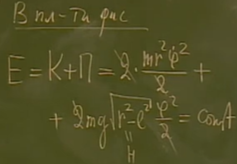 В пл-ти рис
E = K + П = 2 · mr²φ̇²/2 +
+ 2mg √(r² - ℓ²) φ²/2 = const
=
H